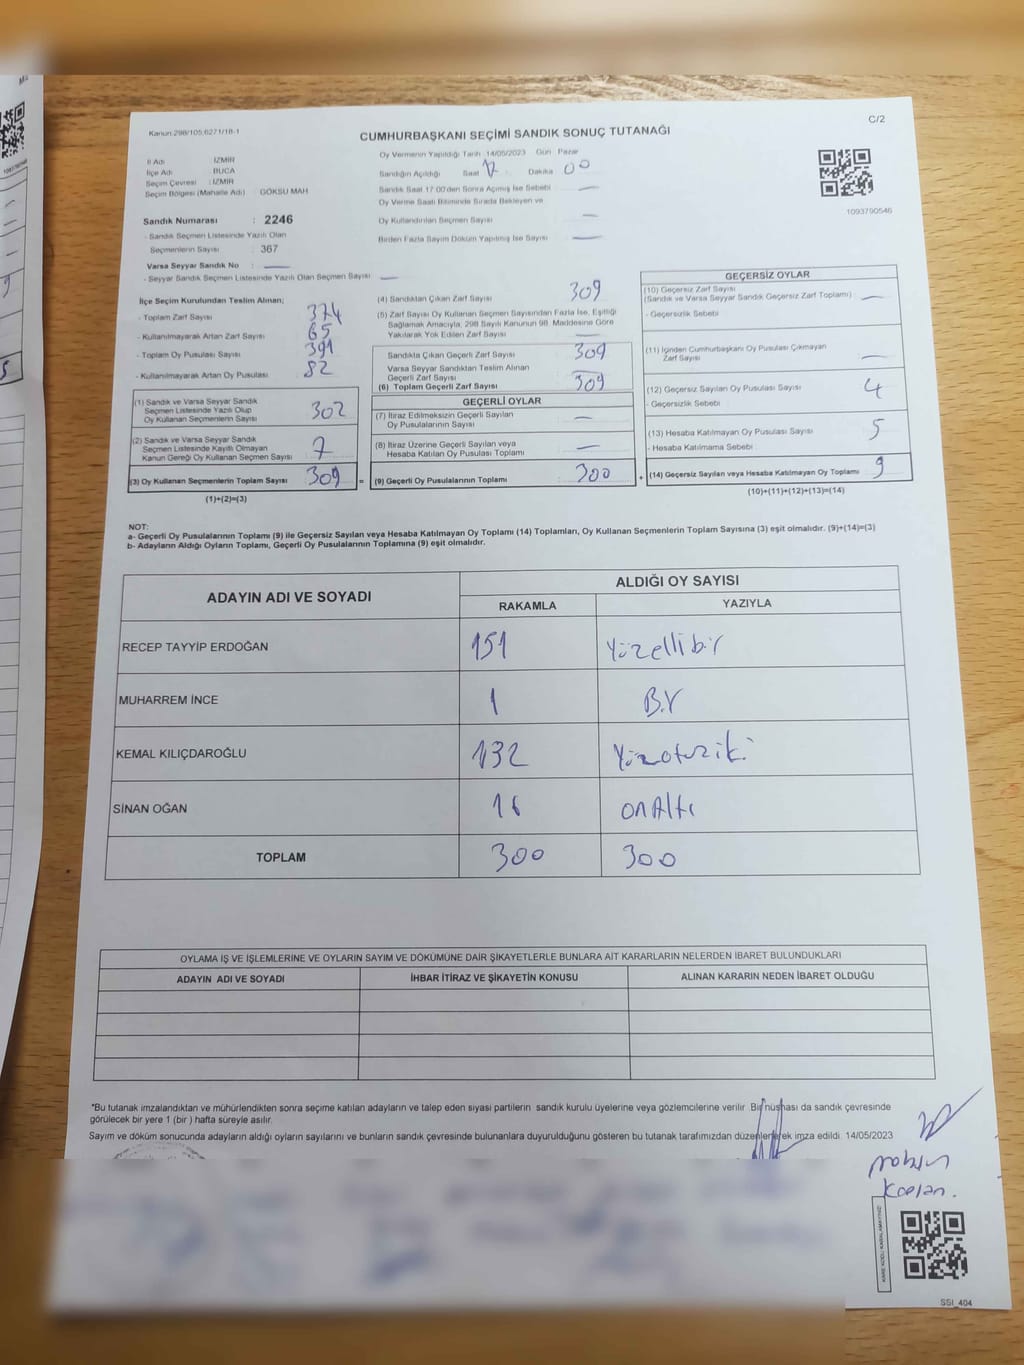 Kanun 298/105;6271/18-1
CUMHURBAŞKANI SEÇİMİ SANDIK SONUÇ TUTANAĞI
C/2
İl Adı : İZMİR
İlçe Adı : BUCA
Seçim Çevresi : İZMİR
Seçim Bölgesi (Mahalle Adı) : GÖKSU MAH
Sandık Numarası : 2246
- Sandık Seçmen Listesinde Yazılı Olan
Seçmenlerin Sayısı : 367
Varsa Seyyar Sandık No : —
- Seyyar Sandık Seçmen Listesinde Yazılı Olan Seçmen Sayısı —
Oy Vermenin Yapıldığı Tarih 14/05/2023 Gün Pazar
Sandığın Açıldığı Saat 17 Dakika 00
Sandık Saat 17:00'den Sonra Açılmış İse Sebebi —
Oy Verme Saati Bitiminde Sırada Bekleyen ve
Oy Kullandırılan Seçmen Sayısı —
Birden Fazla Sayım Döküm Yapılmış İse Sayısı —
1093790546
İlçe Seçim Kurulundan Teslim Alınan;
- Toplam Zarf Sayısı 374
- Kullanılmayarak Artan Zarf Sayısı 65
- Toplam Oy Pusulası Sayısı 391
- Kullanılmayarak Artan Oy Pusulası 82
(1) Sandık ve Varsa Seyyar Sandık
Seçmen Listesinde Yazılı Olup
Oy Kullanan Seçmenlerin Sayısı 302
(2) Sandık ve Varsa Seyyar Sandık
Seçmen Listesinde Kayıtlı Olmayan
Kanun Gereği Oy Kullanan Seçmen Sayısı 7
(3) Oy Kullanan Seçmenlerin Toplam Sayısı 309 =
(1)+(2)=(3)
(4) Sandıktan Çıkan Zarf Sayısı 309
(5) Zarf Sayısı Oy Kullanan Seçmen Sayısından Fazla İse, Eşitliği
Sağlamak Amacıyla, 298 Sayılı Kanunun 98. Maddesine Göre
Yakılarak Yok Edilen Zarf Sayısı —
Sandıkta Çıkan Geçerli Zarf Sayısı 309
Varsa Seyyar Sandıktan Teslim Alınan
Geçerli Zarf Sayısı —
(6) Toplam Geçerli Zarf Sayısı 309
GEÇERLİ OYLAR
(7) İtiraz Edilmeksizin Geçerli Sayılan
Oy Pusulalarının Sayısı —
(8) İtiraz Üzerine Geçerli Sayılan veya
Hesaba Katılan Oy Pusulası Toplamı —
(9) Geçerli Oy Pusulalarının Toplamı 300 +
GEÇERSİZ OYLAR
(10) Geçersiz Zarf Sayısı
(Sandık ve Varsa Seyyar Sandık Geçersiz Zarf Toplamı) —
- Geçersizlik Sebebi :
(11) İçinden Cumhurbaşkanı Oy Pusulası Çıkmayan
Zarf Sayısı —
(12) Geçersiz Sayılan Oy Pusulası Sayısı 4
- Geçersizlik Sebebi :
(13) Hesaba Katılmayan Oy Pusulası Sayısı 5
- Hesaba Katılmama Sebebi :
(14) Geçersiz Sayılan veya Hesaba Katılmayan Oy Toplamı 9
(10)+(11)+(12)+(13)=(14)
NOT:
a- Geçerli Oy Pusulalarının Toplamı (9) ile Geçersiz Sayılan veya Hesaba Katılmayan Oy Toplamı (14) Toplamları, Oy Kullanan Seçmenlerin Toplam Sayısına (3) eşit olmalıdır. (9)+(14)=(3)
b- Adayların Aldığı Oyların Toplamı, Geçerli Oy Pusulalarının Toplamına (9) eşit olmalıdır.
ADAYIN ADI VE SOYADI ALDIĞI OY SAYISI
RAKAMLA YAZIYLA
RECEP TAYYİP ERDOĞAN 151 Yüzellibir
MUHARREM İNCE 1 Bir
KEMAL KILIÇDAROĞLU 132 Yüzotuziki
SİNAN OĞAN 16 onAltı
TOPLAM 300 300
OYLAMA İŞ VE İŞLEMLERİNE VE OYLARIN SAYIM VE DÖKÜMÜNE DAİR ŞİKAYETLERLE BUNLARA AİT KARARLARIN NELERDEN İBARET BULUNDUKLARI
ADAYIN ADI VE SOYADI İHBAR İTİRAZ VE ŞİKAYETİN KONUSU ALINAN KARARIN NEDEN İBARET OLDUĞU
*Bu tutanak imzalandıktan ve mühürlendikten sonra seçime katılan adayların ve talep eden siyasi partilerin sandık kurulu üyelerine veya gözlemcilerine verilir. Bir nüshası da sandık çevresinde
görülecek bir yere 1 (bir ) hafta süreyle asılır.
Sayım ve döküm sonucunda adayların aldığı oyların sayılarını ve bunların sandık çevresinde bulunanlara duyurulduğunu gösteren bu tutanak tarafımızdan düzenlenerek imza edildi. 14/05/2023
Kaplan.
SSI_404